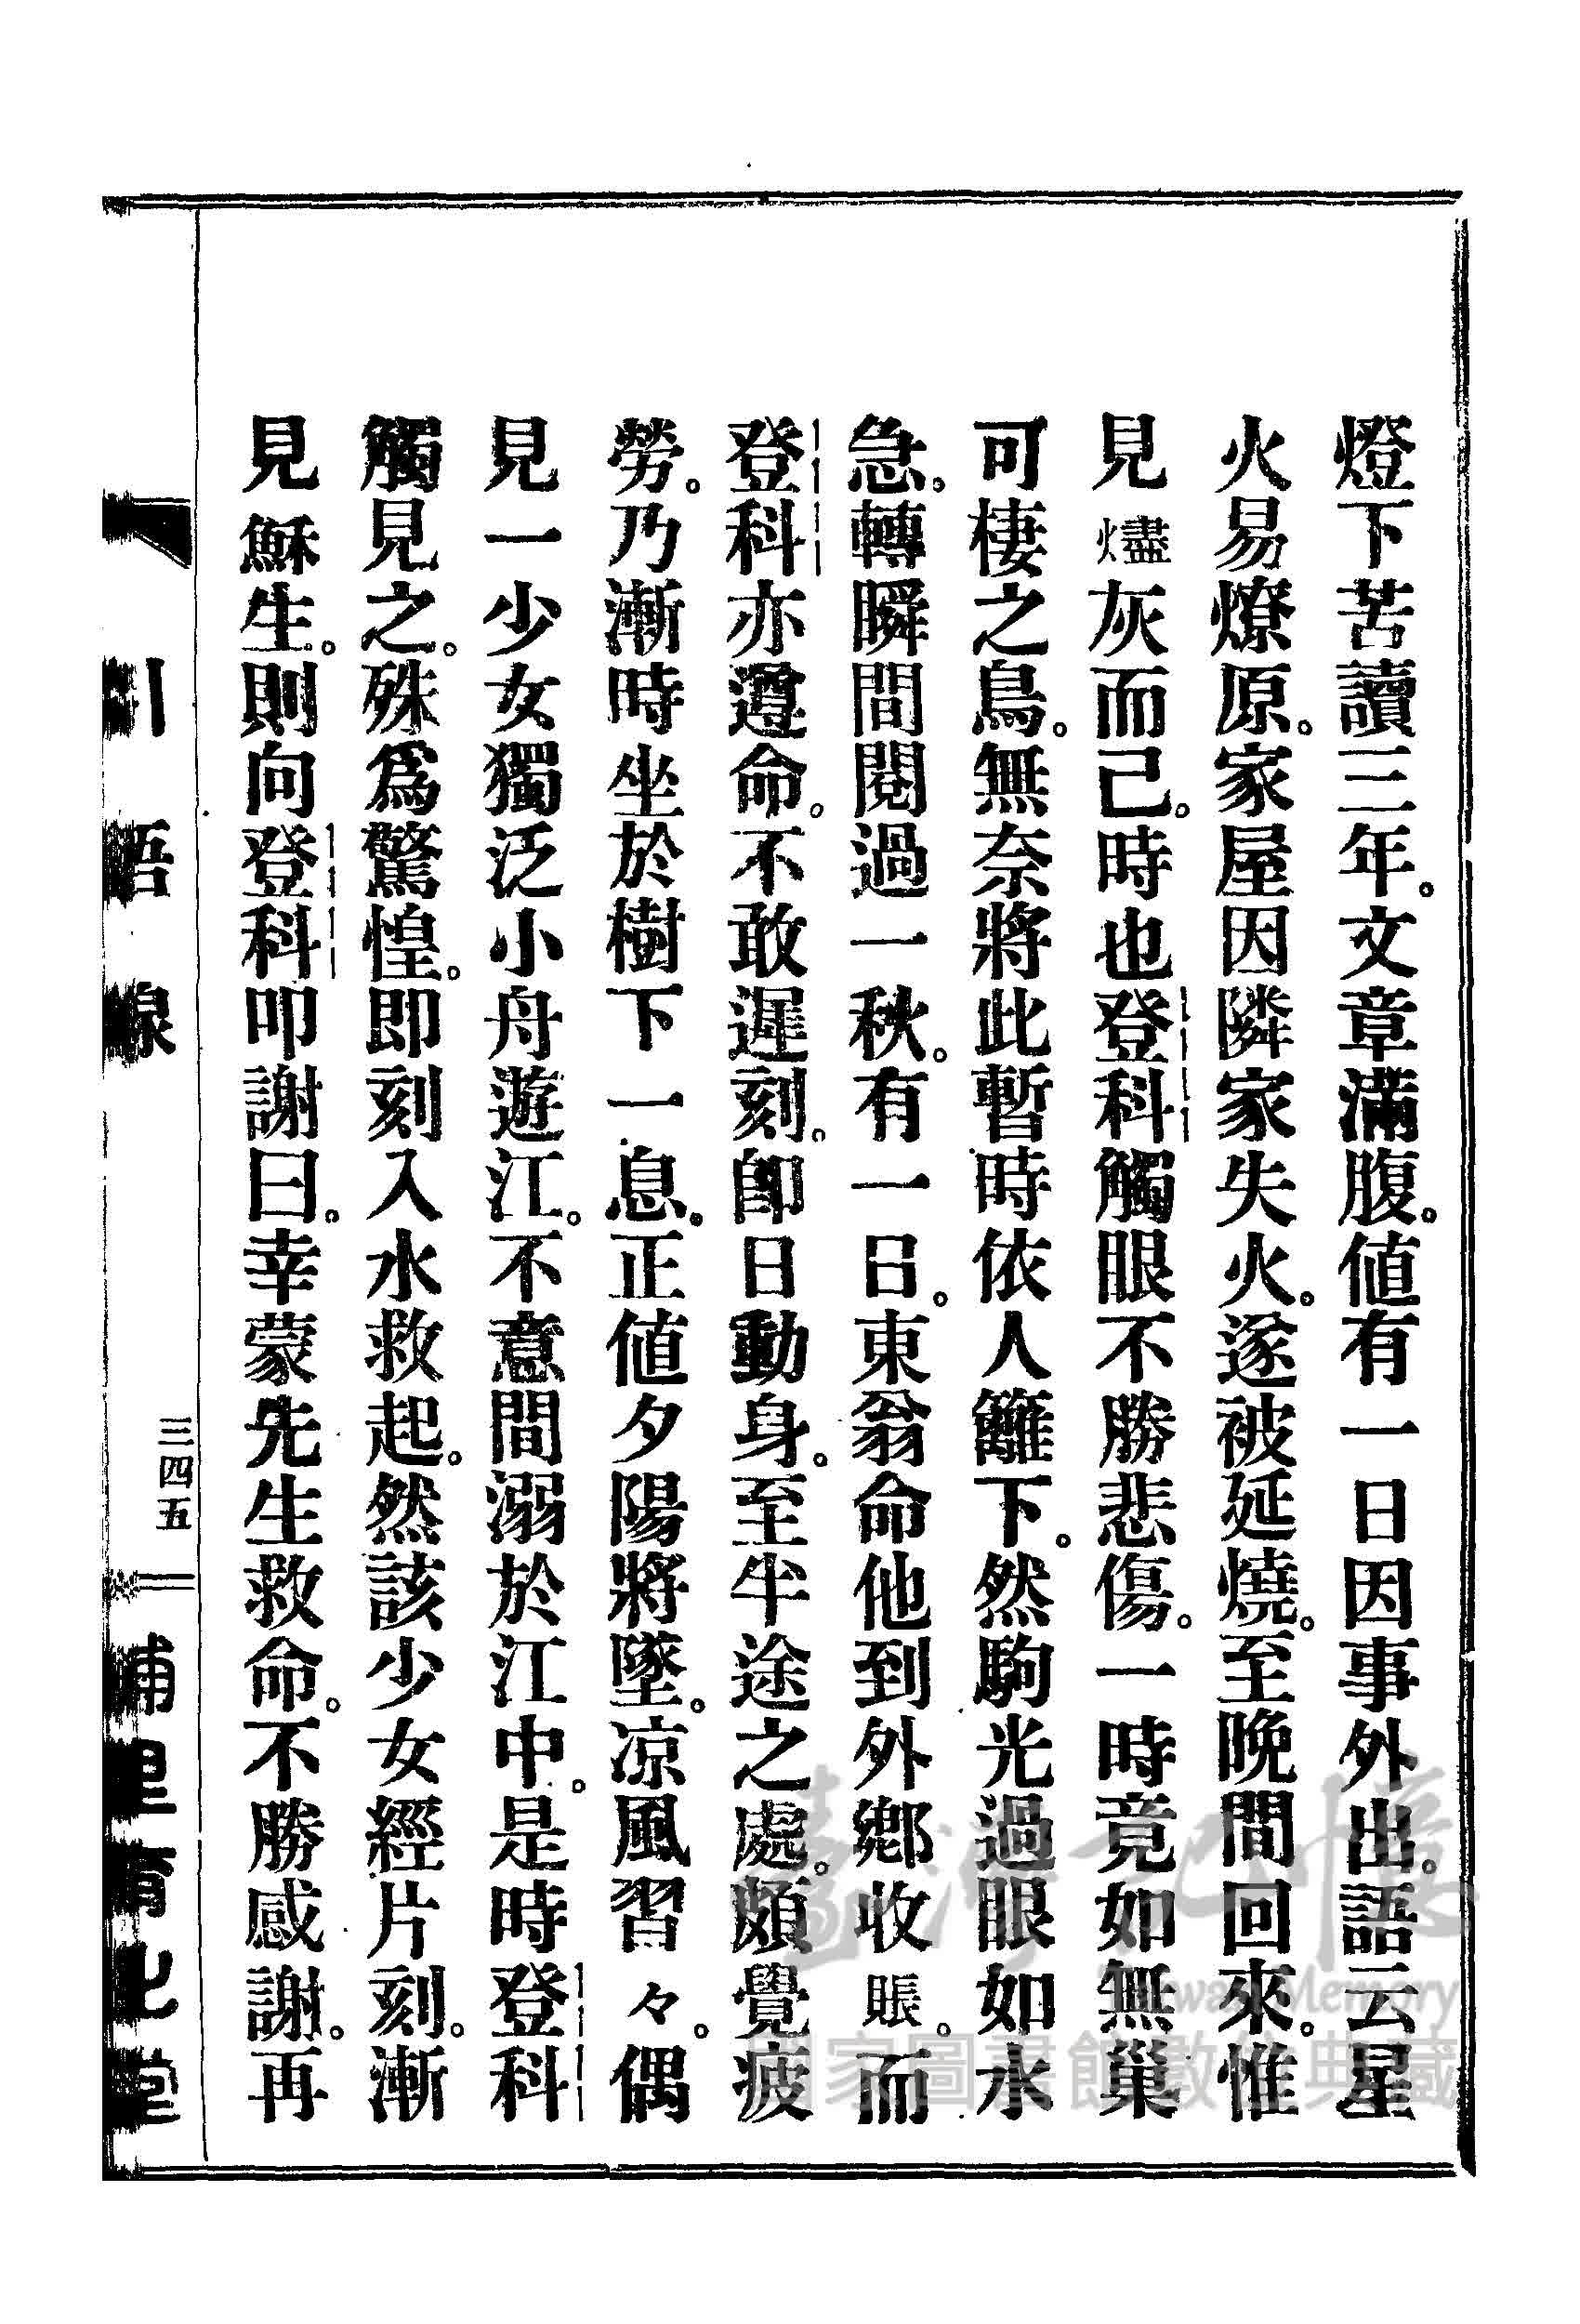 燈下苦讀三年。文章滿腹。值有一日因事外出。語云星
火易燎原。家屋因隣家失火。遂被延燒。至晚間回來。惟
見燼灰而己。時也登科觸眼不勝悲傷。一時竟如無巢
可棲之鳥。無奈將此暫時依人籬下。然駒光過眼如水
急。轉瞬間閱過一秋。有一日。東翁命他到外鄉收賬。而
登科亦遵命。不敢遲刻。卽日動身。至半途之處。頗覺疲
勞。乃漸時坐於樹下一息。正值夕陽將墜。凉風習々。偶
見一少女獨泛小舟遊江。不意間溺於江中。是時登科
觸見之。殊爲驚惶。即刻入水救起。然該少女經片刻。漸
見穌生。則向登科叩謝曰。幸蒙先生救命。不勝感謝。再
引悟線
三四五
埔里育化堂
臺灣記憶
Taiwan Memory
國家圖書館數位典藏